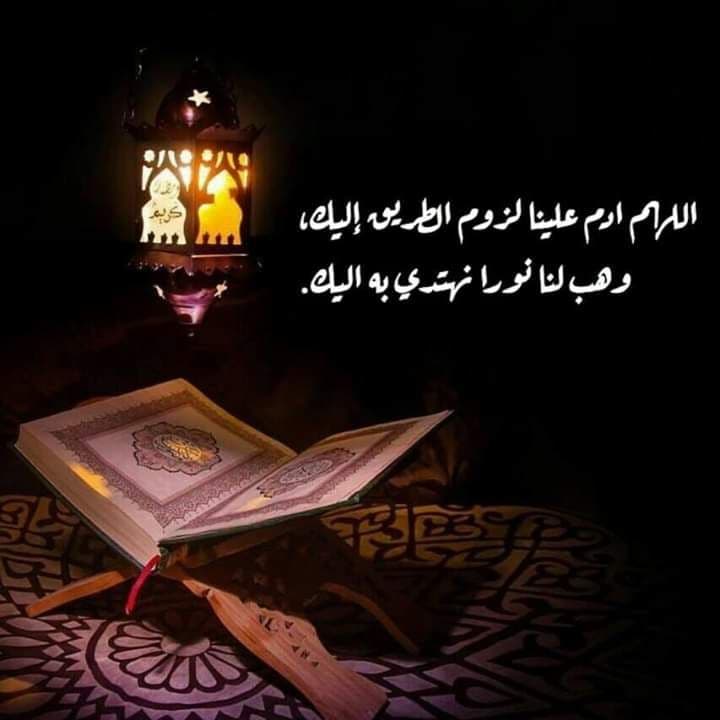 اللهم ادم علينا لزوم الطريق إليك،
وهب لنا نورا نهتدي به اليك.
كريم